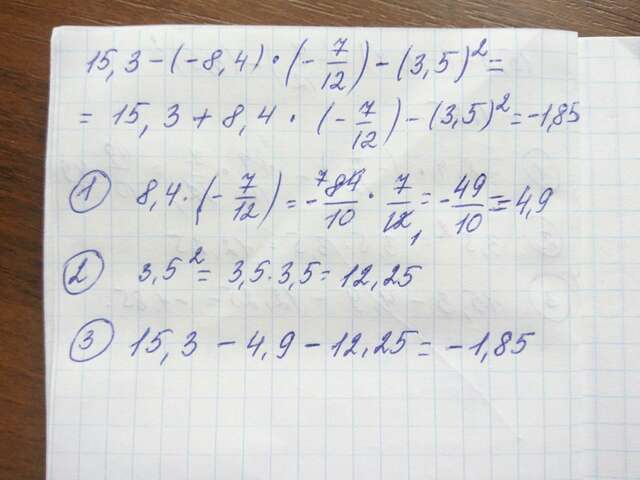 15,3 - (-8,4) · (- 7/12) - (3,5)² =
= 15,3 + 8,4 · (- 7/12) - (3,5)² = -1,85
① 8,4 · (- 7/12) = - ⁷84/10 · 7/12₁ = - 49/10 = 4,9
② 3,5² = 3,5 · 3,5 = 12,25
③ 15,3 - 4,9 - 12,25 = -1,85